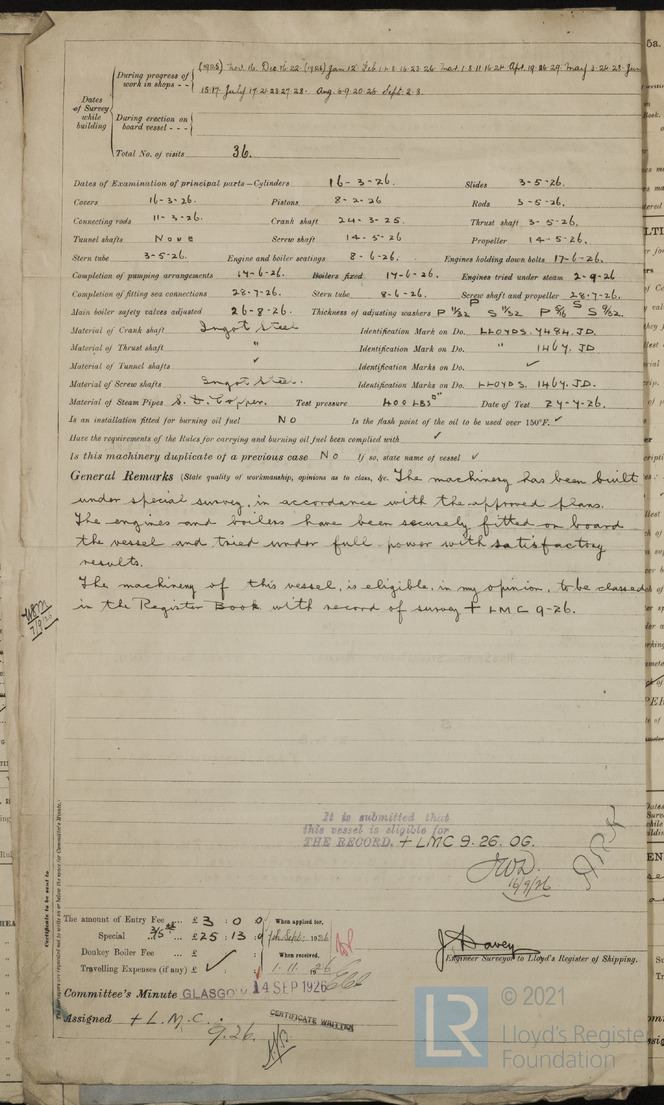 (1925) Nov. 16. Dec. 16. 22. (1926) Jan 12 Feb 1. 8. 16. 23. 26. Mar. 1. 8. 11. 16. 24. Apr. 19. 26. 29. May 3. 26. 28. Jun
During progress of work in shops - - 15. 17. July 17. 21. 23. 27. 28. Aug. 6. 9. 20. 26. Sept. 2. 3.
Dates of Survey while building
During erection on board vessel - - -
Total No. of visits 36.
Dates of Examination of principal parts—Cylinders 16-3-26. Slides 3-5-26.
Covers 16-3-26. Pistons 8-2-26 Rods 3-5-26.
Connecting rods 11-3-26. Crank shaft 24-3-25. Thrust shaft 3-5-26.
Tunnel shafts None Screw shaft 14-5-26 Propeller 14-5-26.
Stern tube 3-5-26. Engine and boiler seatings 8-6-26. Engines holding down bolts 17-6-26.
Completion of pumping arrangements 14-6-26. Boilers fixed 14-6-26. Engines tried under steam 2-9-26
Completion of fitting sea connections 28-7-26. Stern tube 8-6-26. Screw shaft and propeller 28-7-26.
Main boiler safety valves adjusted 26-8-26. Thickness of adjusting washers
Material of Crank shaft Ingot Steel Identification Mark on Do. LLOYDS. 7484. JD.
Material of Thrust shaft " Identification Mark on Do. " 1467. JD
Material of Tunnel shafts ✓ Identification Marks on Do. ✓
Material of Screw shafts Ingot Steel. Identification Marks on Do. LLOYDS. 1467. JD.
Material of Steam Pipes S. D. Copper. Test pressure 400 LBS □" Date of Test 24-4-26.
Is an installation fitted for burning oil fuel NO Is the flash point of the oil to be used over 150°F. ✓
Have the requirements of the Rules for carrying and burning oil fuel been complied with ✓
Is this machinery duplicate of a previous case No If so, state name of vessel ✓
General Remarks (State quality of workmanship, opinions as to class, &c. The machinery has been built
under special survey, in accordance with the approved plans.
The engines and boilers have been securely fitted on board
the vessel and tried under full power with satisfactory
results.
The machinery of this vessel, is eligible, in my opinion, to be classed
in the Register Book with record of survey + LMC 9-26.
It is submitted that
this vessel is eligible for
THE RECORD. + LMC 9.26. OG.
JWD.
16/9/26
The amount of Entry Fee ... £ 3 : 0 : 0 When applied for,
Special 3/5 ... £ 25 : 13 : 0 7th Sept. 1926
Donkey Boiler Fee ... £ When received,
Travelling Expenses (if any) £ ✓ 1.11.1926
J. Davey
Engineer Surveyor to Lloyd's Register of Shipping.
Committee's Minute GLASGOW 14 SEP 1926
Assigned + L.M.C.
9.26.
CERTIFICATE WRITTEN
Certificate to be sent to
© 2021
LR Lloyd's Register
Foundation